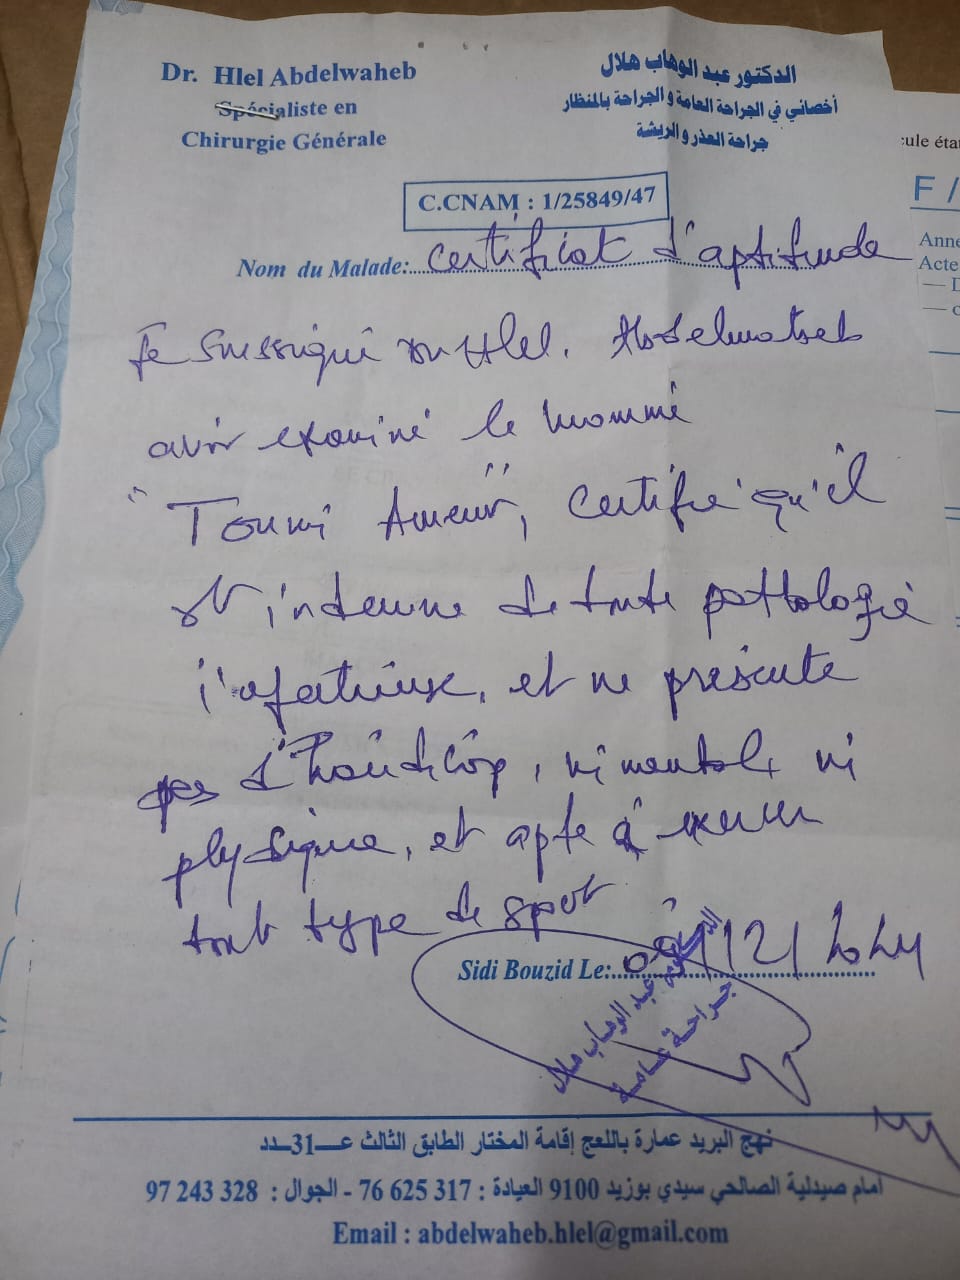 Dr. Hlel Abdelwaheb
Spécialiste en
Chirurgie Générale
الدكتور عبد الوهاب هلال
أخصائي في الجراحة العامة و الجراحة بالمنظار
جراحة الغدر و الريشة
C.CNAM : 1/25849/47
Nom du Malade: Certificat d'aptitude
Je soussigné Dr Hlel. Abdelwaheb
avoir examiné le nommé
"Toumi Ameur", certifie qu'il
est indemne de toute pathologie
infectieuse, et ne présente
pas d'handicap, ni mentale ni
physique, et apte à exercer
tout type de sport
Sidi Bouzid Le: /12/2024
الدكتور عبد الوهاب هلال
جراحة عامة
نهج البريد عمارة باللعج إقامة المختار الطابق الثالث عـــ31ــدد
امام صيدلية الصالحي سيدي بوزيد 9100 العيادة : 317 625 76 - الجوال : 328 243 97
Email : abdelwaheb.hlel@gmail.com
cule éta
F /
Anné
Acte